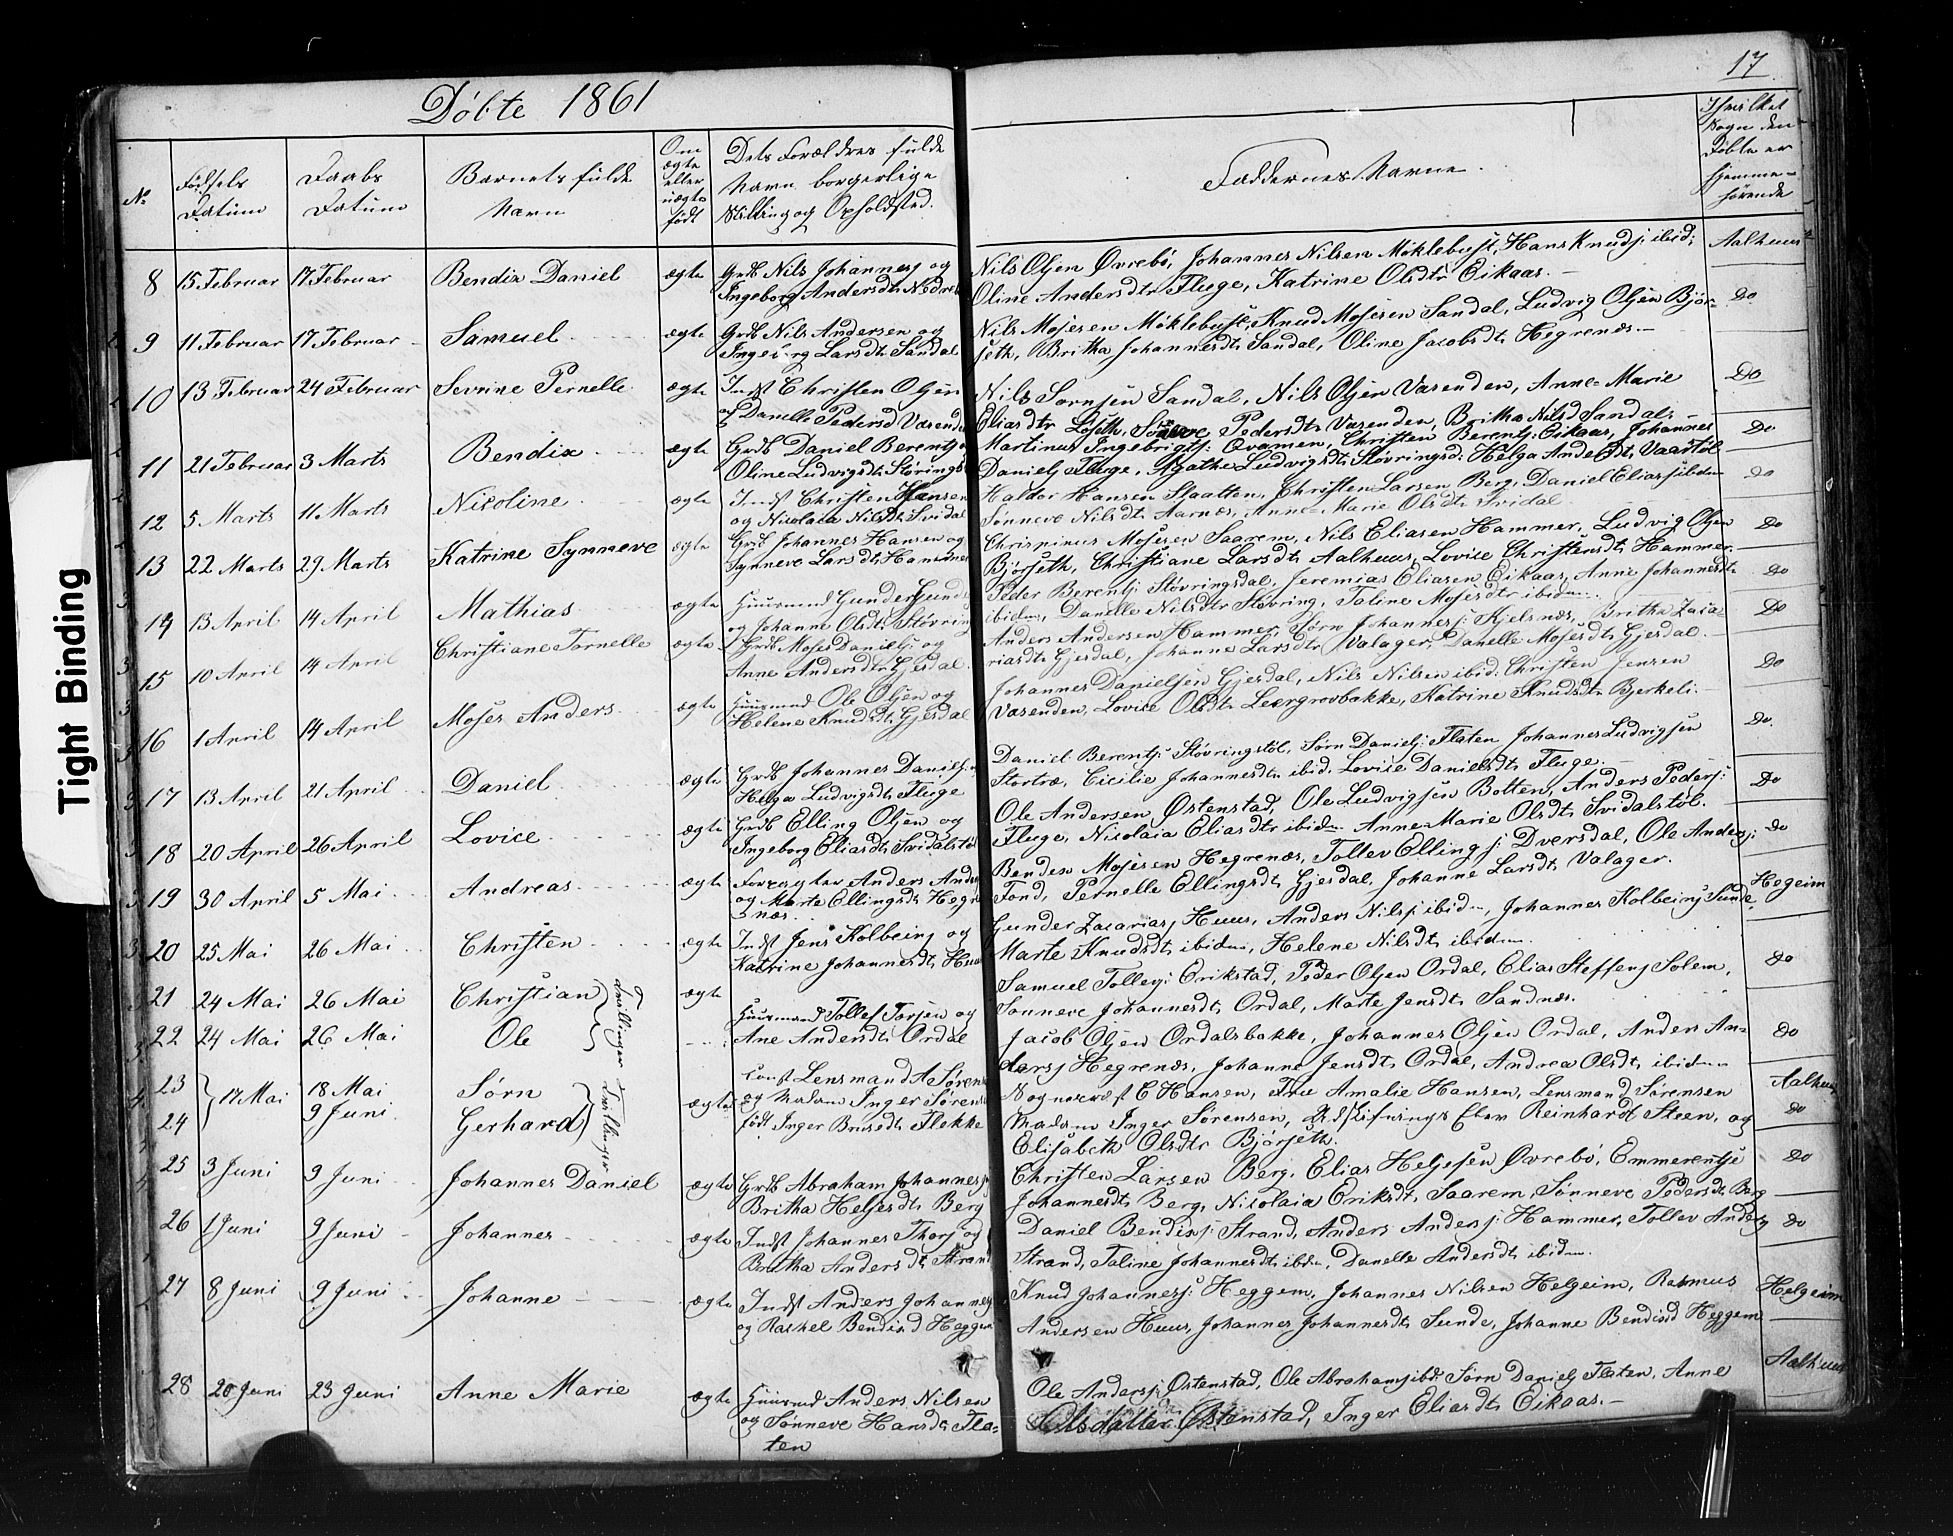 17
Döbte 1861
No
Födsels
Datum
Daabs
Datum
Barnets fulde
Navn
Om
ægte
eller
uægte
födt
Dets Forældres fulde
Navn borgerlige
Stilling og Opholdsted.
Faddernes Navne.
I hvilket
Sogn den
Döbte er
hjemme-
hörende
8 15 Februar 17 Februar Bendix Daniel ægte Grdb Nils Johannesj og
Ingeborg Andersdtr
Nils Olsen Øvrebö, Johannes Nilsen Möklebust, Hans Knudsj. ibid;
Oline Andersdtr Fluge, Katrine Olsdtr Eikaas.
Aalhuus
9 11 Februar 17 Februar Samuel ægte Grdb Nils Andersen og
Ingeborg Larsdtr Sandal
Nils Mosesen Möklebust, Knud Mosesen Sandal, Ludvig Olsen Björ-
seth, Britha Johannesdtr Sandal, Oline Jacobsdtr Hegrenæs.
Do
10 13 Februar 24 Februar Sevrine Pernelle ægte Indst Christen Olsen
og Danelle Pedersd Vasenden
Nils Sörnsen Sandal, Nils Olsen Vasenden, Anne Marie
Eliasdtr Löseth, Pedersdtr Vasenden, Britha Nilsd Sandal
Do
11 21 Februar 3 Marts Bendix ægte Grdb Daniel Berentsj
Oline Ludvigsdtr Stövrings
Martinus Ingebrigtsj. Christen Berentsj. Eikaas, Johannes
Danielsj Fluge, Agathe Ludvigsdtr Stövringsd. Helga Andersdtr
Do
12 5 Marts 11 Marts Nicoline ægte Indst Christen Hansen
og Nicolaia Nilsdtr Svidal
Haldor Hansen Slaatten, Christen Larsen Berg, Daniel Eliasj ibidem
Sönneve Nilsdtr Aarnæs, Anne Marie Olsdtr Svidal
Do
13 22 Marts 29 Marts Katrine Synneve ægte Grdb Johannes Hansen og
Synneve Larsdtr Hammer
Chrispinus Mosesen Saarem, Nils Eliasen Hammer, Ludvig Olsen
Björseth, Christiane Larsdtr Aalhuus, Lovise Christensdtr Hammer.
Do
14 13 April 14 April Mathias ægte Huusmand Gunder
og Johanne Olsdtr Stövring
Peder Berentsj Stövringsdal, Jeremias Eliasen Eikaas, Anne Johannesdtr
ibidem, Danelle Nilsdtr Stövring, Taline Mosesdtr ibidem.
Do
15 10 April 14 April Christiane Tornelle ægte Grdb Moses Danielsj og
Anne Andersdtr Gjesdal
Anders Andersen Hammer, Sörn Johannesj. Kjelsnæs, Britha Zaca-
riasdtr Gjesdal, Johanne Larsdtr Valager, Danelle Mosesdtr Gjesdal.
Do
16 1 April 14 April Moses Anders ægte Huusmand Ole Olsen og
Helene Knudsdtr Gjesdal
Johannes Danielsen Gjesdal, Nils Nilsen ibid. Christen Jensen
Vasenden, Lovise Olsdtr Leergrovbakke, Katrine Knudsdtr Bjerkeli.
Do
17 13 April 21 April Daniel ægte Grdb Johannes Danielsj. og
Helga Ludvigsdtr Fluge
Daniel Berentsj Stövringstöl, Sörn Danielsj Flaten Johannes Ludvigsen
Stortræ, Cicilie Johannesdtr ibid. Lovise Danielsdtr Fluge.
Do.
18 20 April 26 April Lovice ægte Grdb Elling Olsen og
Ingeborg Eliasdtr Svidalstöl
Ole Andersen Østenstad, Ole Ludvigsen Botten, Anders Pedersj:
Fluge, Nicolaia Eliasdtr ibidem Anne Marie Olsdtr Svidalstöl.
Do
19 30 April 5 Mai Andreas ægte Forpagter Anders
og Marte Ellingsdtr Hegre-
næs
Bendix Mosesen Hegrenæs, Tollev Ellingsj. Dversdal, Ole Andersj.
Fond, Pernelle Ellingsdtr Gjesdal, Johanne Larsdtr Valager.
Do
20 25 Mai 26 Mai Christen ægte Indst Jens Kolbeinsj og
Katrine Johannesdtr Huus
Gunder Zacariasj Huus, Anders Nilsj ibidem, Johannes Kolbeinsj Sunde,
Marte Knudsdtr ibidem, Helene Nilsdtr ibidem.
Hegeim
21 24 Mai 26 Mai Christian ægte
22 24 Mai 26 Mai Ole
Tvillinger
Huusmand Tollef Torsen og
Ane Andersdtr Ordal
Samuel Tollevsj: Erikstad, Peder Olsen Ordal, Elias Steffensj Solem,
Sönneve Johannesdtr Ordal, Marte Jensdtr Sandnæs.
Do
Jacob Olsen Ordalsbakke, Johannes Olsen Ordal, Anders An-
dersj Hegrenæs, Johanne Jensdtr Ordal, Andrea Olsdtr ibidem
Do
23 17 Mai 18 Mai Sörn
24 9 Juni Gerhard
Tvillinger
ægte Const Lensmand A Sörensen
og Madam Inger Sörensen
födt Inger Flekke
Sognepræst C Hansen, Fru Amalie Hansen, Lensmand Sörensen
Madam Inger Sörensen, Elev Reinhardt Steen, og
Elisabeth Olsdtr Björseth.
Aalhuus
Do
25 3 Juni 9 Juni Johannes Daniel ægte Grdb Abraham Johannesj
Britha Helgesdtr Berg
Christen Larsen Berg, Elias Helgesen Øvrebö, Emmerentse
Johannesdtr Berg, Nicolaia Eriksdtr Saarem, Sönneve Pedersdtr Berg
Do
26 1 Juni 9 Juni Johannes ægte Indst Johannes Thorsj og
Britha Andersdtr Strand
Daniel Bendixsj: Strand, Anders Andersj: Hammer, Tollev Andersj
Strand, Taline Johannesdtr ibidem, Danelle Andersdtr ibidem.
Do
27 8 Juni 9 Juni Johanne ægte Indst Anders Johannesj
og Rachel Bendixd Heggem
Knud Johannesj: Heggem, Johannes Nilsen Helgeim, Rasmus
Andersen Huus, Johannes Johannesdtr Sunde, Johanne Bendixd Heggem
Helgeim
28 20 Juni 23 Juni Anne Marie ægte Huusmd Anders Nilsen
og Sönneve Hansdtr Fla-
ten
Ole Andersj: Østenstad, Ole Abrahamsj ibd: Sörn Danielsj Flaten, Anne
Olsdatter Østenstad, Inger Eliasdtr Eikaas.
Aalhuus
Tight Binding